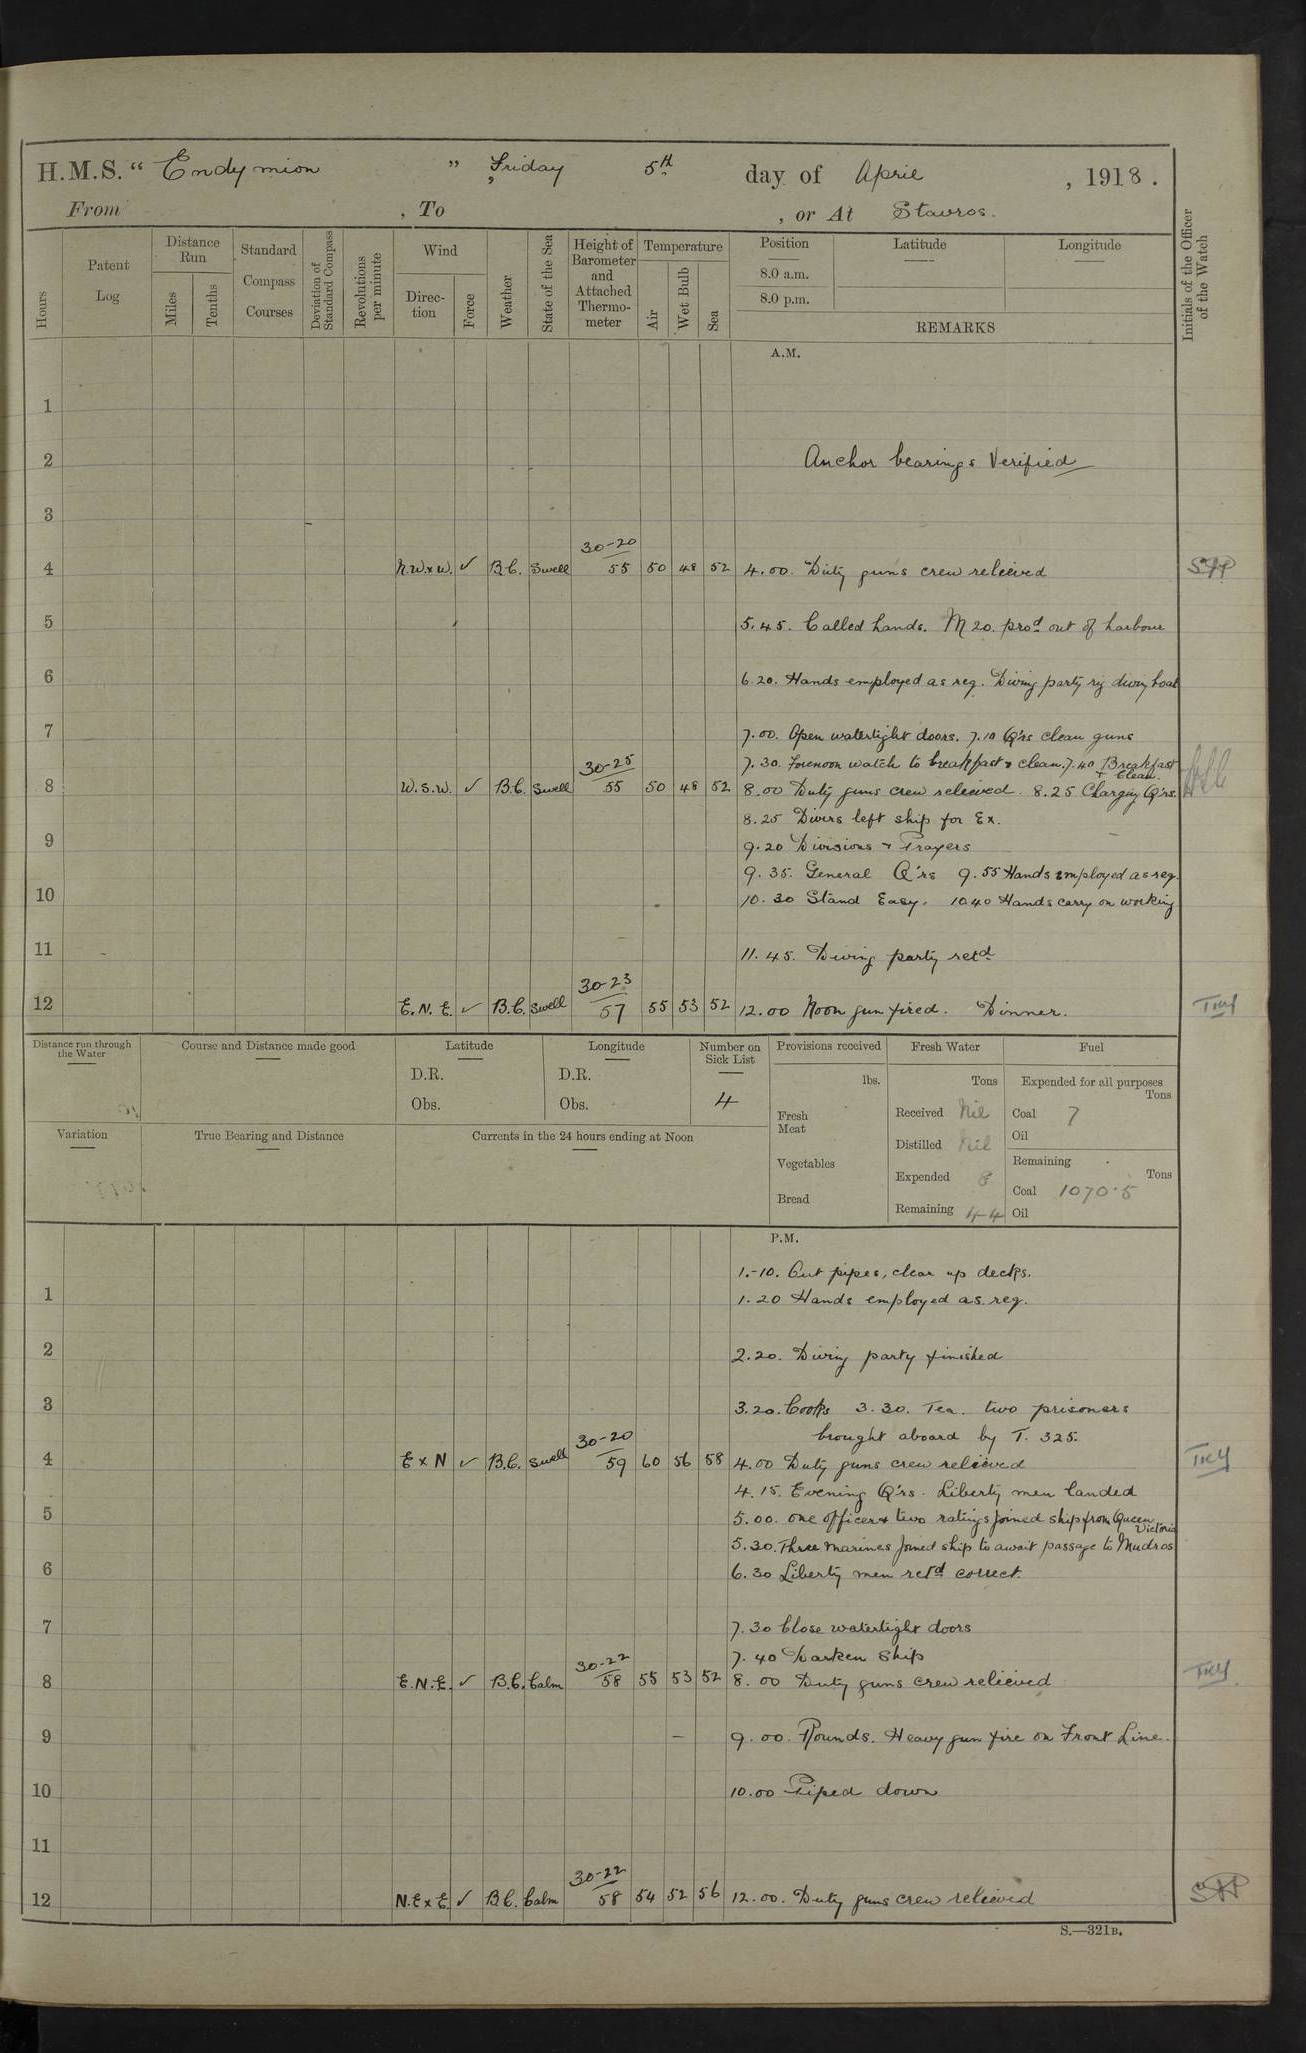 H.M.S. “ Endymion ” , Friday 5th day of April , 1918.
From , To , or At Stavros.
Hours
Patent Log
Distance Run
Miles
Tenths
Standard Compass Courses
Deviation of Standard Compass
Revolutions per minute
Wind
Direc-tion
Force
Weather
State of the Sea
Height of Barometer and Attached Thermo-meter
Temperature
Air
Wet Bulb
Sea
Position
8.0 a.m.
8.0 p.m.
Latitude
Longitude
REMARKS
Initials of the Officer of the Watch
A.M.
1
2 Anchor bearings Verified
3
30-20
4 N.W x W. ✓ B.C. Swell 55 50 48 52 4.00. Duty guns crew relieved
5 5.45. Called hands. M 20. pro.d out of harbour
6 6.20. Hands employed as reg. Diving party rig diving boat
7 7.00. Open watertight doors. 7.10 Q'rs clean guns
7.30. Forenoon watch to breakfast & clean. 7.40 Breakfast
30-25 + Clean.
8 W.S.W. ✓ B.C. Swell 55 50 48 52 8.00 Duty guns crew relieved. 8.25 Charging Q'rs.
8.25 Divers left ship for Ex.
9 9.20 Divisions + Prayers
9.35. General Q'rs 9.55 Hands employed as reg.
10 10.30 Stand Easy. 10.40 Hands carry on working
11 11.45. Diving party ret.d
30-23
12 E.N.E. ✓ B.C. Swell 57 55 53 52 12.00 Noon gun fired. Dinner.
Distance run through the Water
Course and Distance made good
Latitude
D.R.
Obs.
Longitude
D.R.
Obs.
Number on Sick List
4
Provisions received
lbs.
Fresh Meat
Vegetables
Bread
Fresh Water
Tons
Received Nil
Distilled Nil
Expended 8
Remaining 44
Fuel
Expended for all purposes
Tons
Coal 7
Oil
Remaining
Tons
Coal 1070.5
Oil
Variation
True Bearing and Distance
Currents in the 24 hours ending at Noon
P.M.
1.-10. Out pipes, clear up decks.
1 1.20 Hands employed as reg.
2 2.20. Diving party finished
3 3.20. Cooks 3.30. Tea. two prisoners
brought aboard by T. 325.
30-20
4 E x N ✓ B.C. Swell 59 60 56 58 4.00 Duty guns crew relieved
4.15. Evening Q'rs. Liberty men landed
5 5.00. one officer & two ratings joined ship from Queen Victoria
5.30. Three marines joined ship to await passage to Mudros
6 6.30 Liberty men ret.d correct.
7 7.30 Close watertight doors
7.40 Darken Ship
30-22
8 E.N.E. ✓ B.C. Calm 58 55 53 52 8.00 Duty guns crew relieved
9 9.00. Rounds. Heavy gun fire on Front Line.
10 10.00 Piped down
11
30-22
12 N.E x E. ✓ B.C. Calm 58 54 52 56 12.00. Duty guns crew relieved
S.—321B.